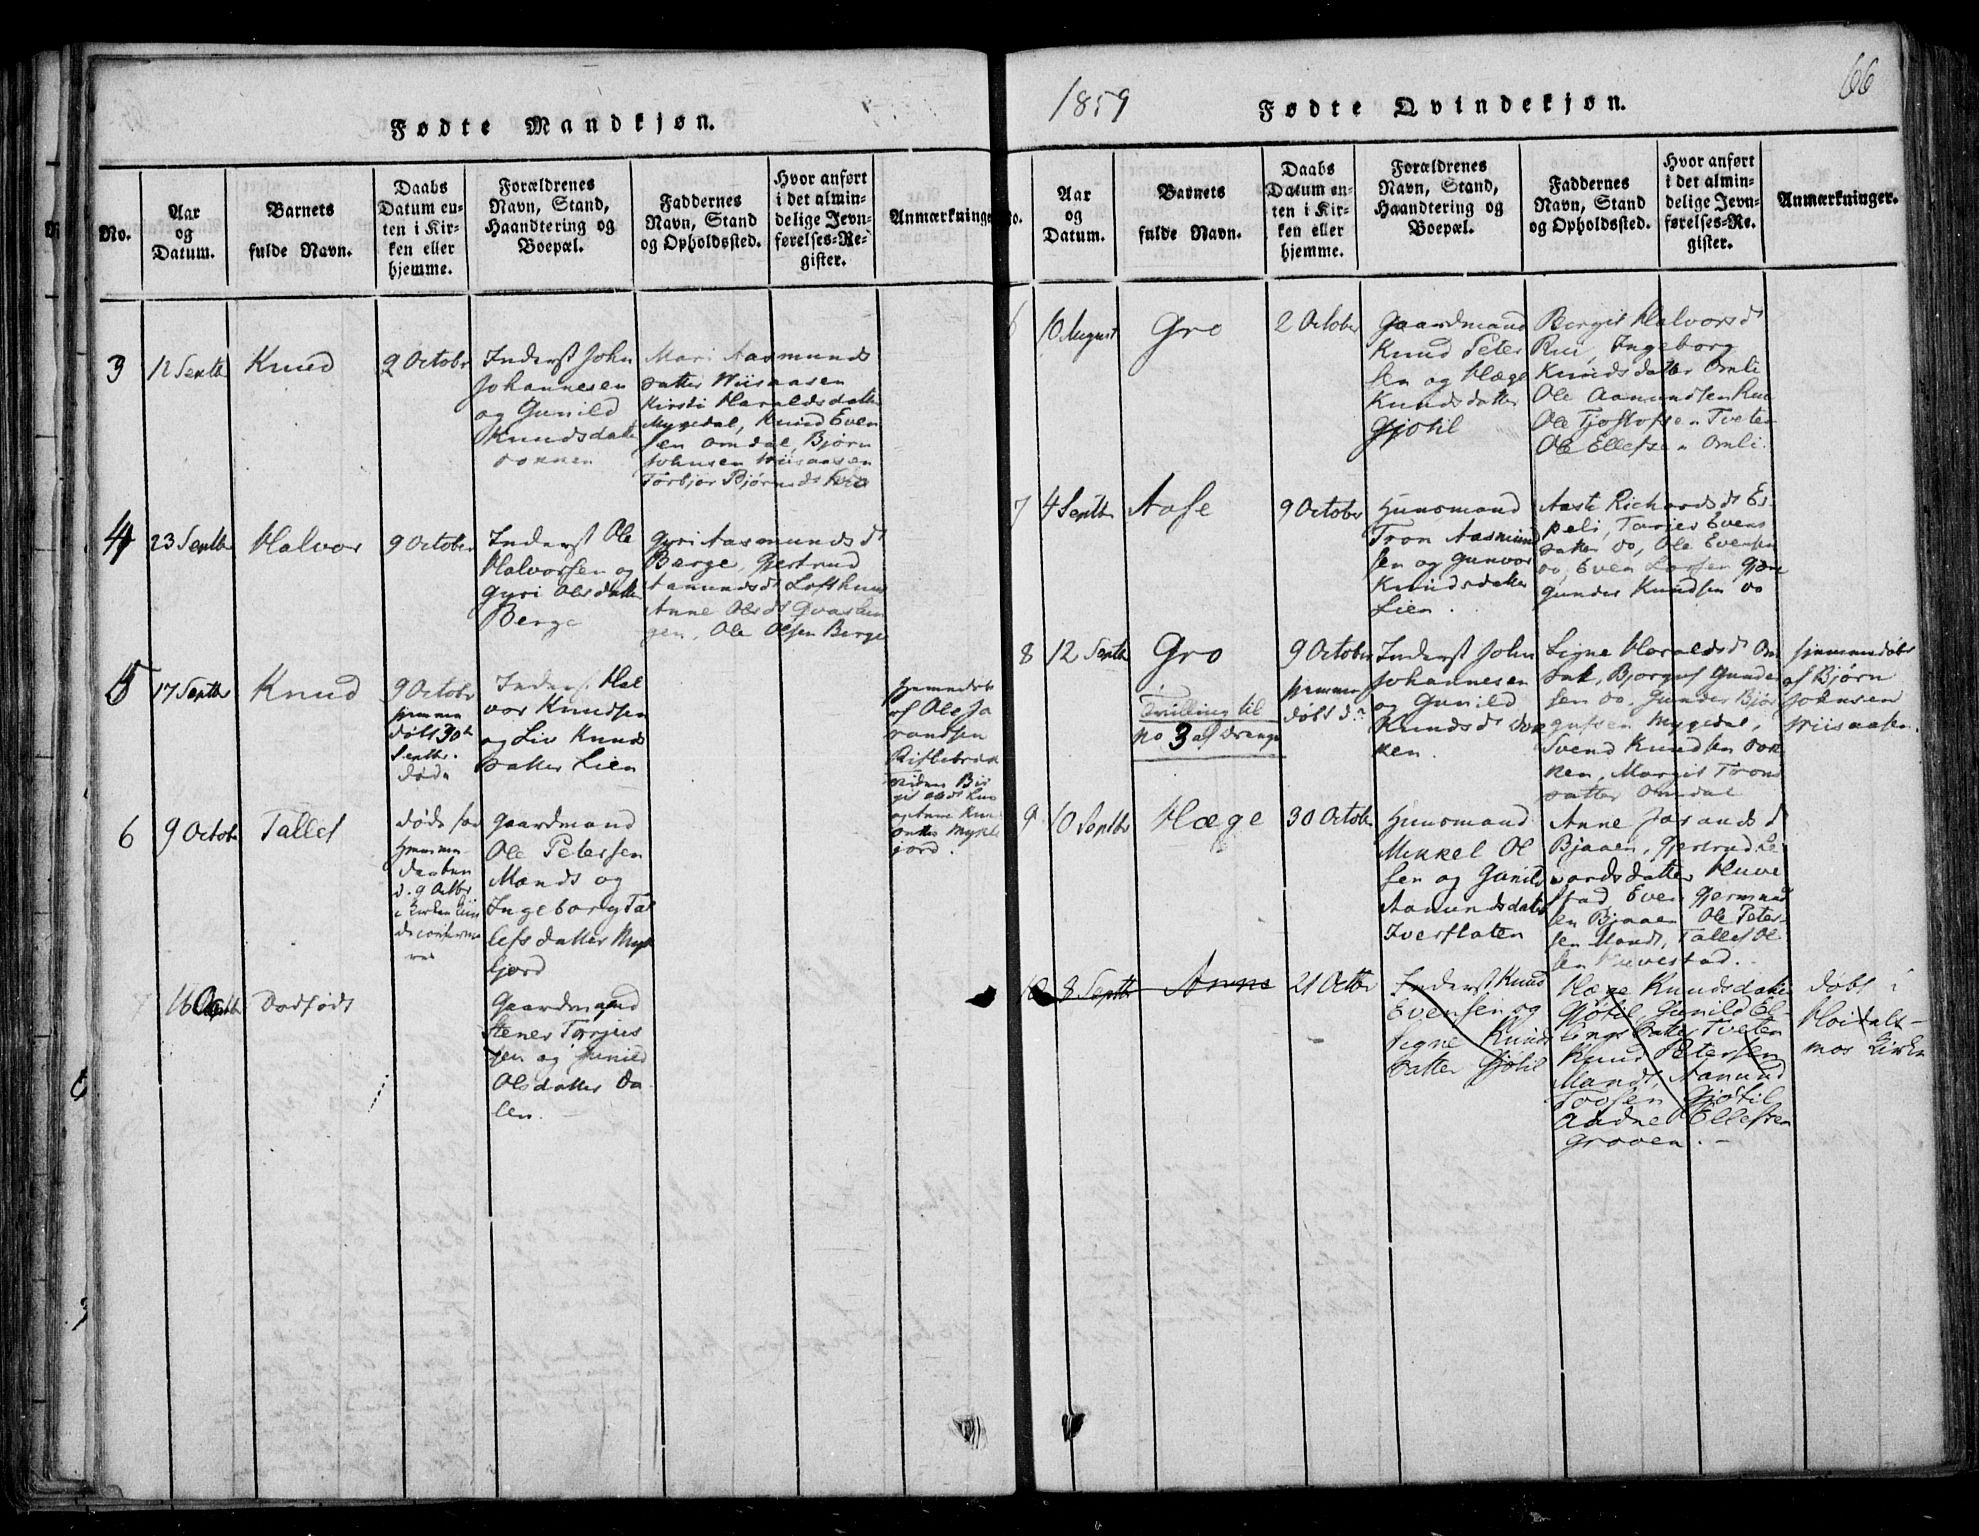 Fødte Mandkjøn.
No.
Aar
og
Datum.
Barnets
fulde Navn.
Daabs
Datum en-
ten i Kir-
ken eller
hjemme.
Forældrenes
Navn, Stand,
Haandtering og
Boepæl.
Faddernes
Navn, Stand
og Opholdssted.
Hvor anført
i det almin-
delige Jevn-
førelses-Re-
gister.
Anmærkninge
3
12 Septbr
Knud
2 Octobr
Inderst John
Johannesen
og Gunild
Knudsdatter
Mari Aasmunds
datter Wiisaasen
Kirsti Haraldsdatter
Mygedal, Knud Even
sen Omdal, Bjørn
Johnsen Wiisaasen
Torbjør Bjørnsdt
4
23 Septbr
Halvor
9 October
Inderst Ole
Halvorsen og
Gyri Olsdatter
Berge
Gyri Aasmundsdt
Berge, Gjertrud
Aamundsdt Lofthuus
Anne Olsdt
gen, Ole Olsen Berge
5
17 Septbr
Knud
9 Octobr
hjemme
døbt 30te
Septbr.
Inderst Hal
vor Knudsen
og Liv Knuds
datter Lien
hjemmedøbt
af Ole Jo
randsen
6
9 Octobr
Tallef
Gaardmand
Ole Petersen
Mands og
Ingeborg Tal
lefsdatter Myk
ljord
7
16
Dødfødt
Gaardmand
Stener Torjus
sen og Gunild
Olsdatter Da
len.
1859
Fødte Qvindekjøn.
66
No.
Aar
og
Datum.
Barnets
fulde Navn.
Daabs
Datum en-
ten i Kir-
ken eller
hjemme.
Forældrenes
Navn, Stand,
Haandtering og
Boepæl.
Faddernes
Navn, Stand
og Opholdssted.
Hvor anført
i det almin-
delige Jevn-
førelses-Re-
gister.
Anmærkninger.
6
10 August
Gro
2 October
Gaardmand
Knud Peter
sen og Hæge
Knudsdatter
Gjøtil
Bergit Halvorsdt
Rui, Ingeborg
Knudsdatter Omli
Ole Aamundsen Rui
Ole Tjostofsen Tveten
Ole Ellefsen Omli.
7
4 Septbr
Aase
9 October
Huusmand
Tron Aasmund
sen og Gunvor
Knudsdatter
Lien.
Aaste Richardsdt Es
peli, Torjer Evens
datter do, Ole Evensen
do, Even Larsen
Gunder Knudsen do
8
12 Septbr
Gro
Tvilling til
No 3 af Drenge
9 October
hjemme
døbt d.
Inderst John
Johannesen
og Gunild
Knudsdt Dok
ken.
Signe Haraldsdt Om
dal, Bjorguf Gunder
sen do, Gunder Bjor
gufsen Mygedal,
Svend Knudsen Dok
ken, Margit Trons
datter Omdal
hjemmedøbt
af Bjørn
Johnsen
Wiisaasen.
9
10 Septbr
Hæge
30 October
Huusmand
Mikkel Ol
sen og Gunild
Aamundsdatter
Iverflaten
Anne Jorandsdt
Bjaaen, Gjertrud Le
vordsdatter Huve
stad Even Gjermund
sen Bjaaen Ole Peter-
sen Mandt, Tallef Ol
sen Huvestad.
10
8 Septbr
Anne
21 Octbr
Inderst Knud
Evensen og
Signe Knuds
datter Gjøtil
Hæge Knudsdatter
Gjøtil, Gunild El-
lings datter Tveten
Knud Petersen
Mandt, Aamund
Tovsen Gjøtil
Aadne Ellefsen
Groven.
døbt i
Hoidals-
mos Kirke